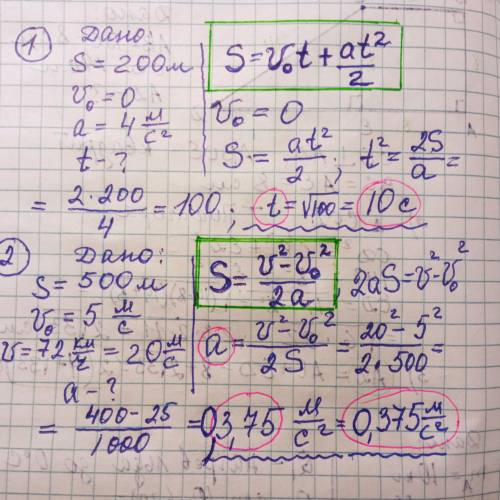 1 Дано:
S = 200м
v₀ = 0
a = 4 м/с²
t - ?
S = v₀t + at²/2
v₀ = 0
S = at²/2 ; t² = 2S/a =
= 2·200/4 = 100 ; t = √100 = 10 с
2 Дано:
S = 500м
v₀ = 5 м/с
v = 72 км/ч = 20 м/с
a - ?
S = v² - v₀²/2a , 2aS = v² - v₀²
a = v² - v₀²/2S = 20² - 5²/2·500 =
= 400 - 25/1000 = 0,3,75 м/с² = 0,375 м/с²